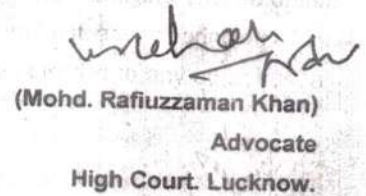 (Mohd. Rafiuzzaman Khan)
Advocate
High Court. Lucknow.